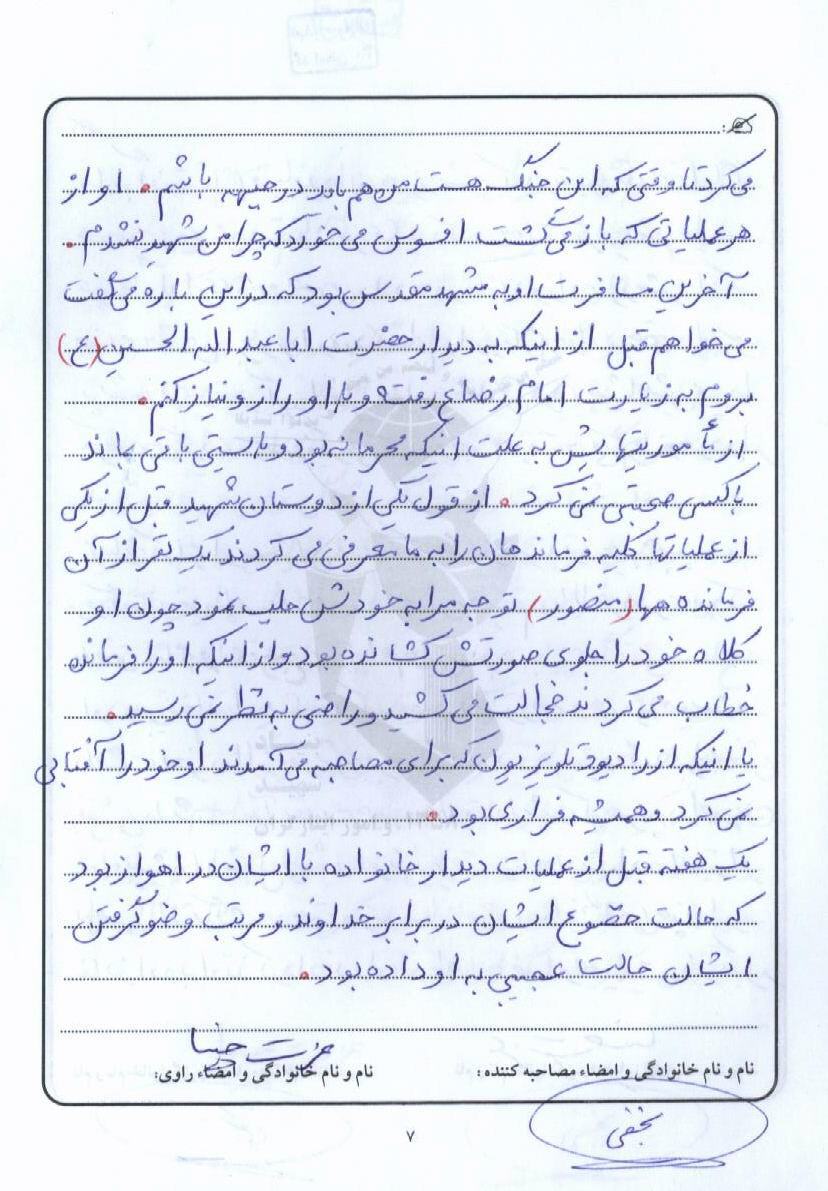 می کرد تا وقتی که این جنگ هست من هم باید در جبهه باشم. او از
هر عملیاتی که باز می گشت افسوس می خورد که چرا من شهید نشدم.
آخرین مسافرت او به مشهد مقدس بود که در این باره می گفت
می خواهم قبل از اینکه به دیدار حضرت ابا عبداله الحسین (ع)
بروم به زیارت امام رضا ع رفته و با او راز و نیاز کنم.
از مأموریتهایش به علت اینکه محرمانه بود و بایستی باقی بماند
با کسی صحبتی نمی کرد. از قول یکی از دوستان شهید قبل از یکی
از عملیاتها کلیه فرماندهان را به ما معرفی می کردند یک نفر از آن
فرمانده هها (منصور) توجه مرا به خودش جلب نمود چون او
کلاه خود را جلوی صورتش کشانده بود و از اینکه او را فرمانده
خطاب می کردند خجالت می کشید و راضی به نظر نمی رسید.
یا اینکه از رادیو و تلویزیون که برای مصاحبه می آمدند او خود را آفتابی
نمی کرد و همیشه فراری بود.
یک هفته قبل از عملیات دیدار خانواده با ایشان در اهواز بود
که حالت خضوع ایشان در برابر خداوند و مرتب وضو گرفتن
ایشان حالت عجیبی به او داده بود.
نام و نام خانوادگی و امضاء مصاحبه کننده :
نام و نام خانوادگی و امضاء راوی:
عزت
نجفی
۷